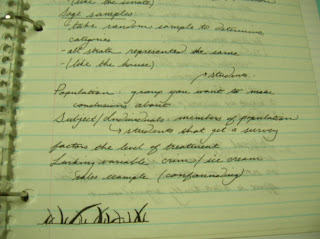 (like the senate)
Sage samples
take random sample to determine
categories
- all strata represented the same
(like the house)
students
Population: group you want to make
conclusions about
Subjects/Individuals: members of population
students that get a survey
factors the level of treatment
Lurking variable: crime/ice cream
sales example (confounding)